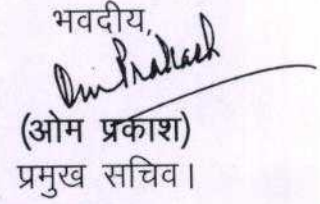 भवदीय,
Om Prakash
(ओम प्रकाश)
प्रमुख सचिव।